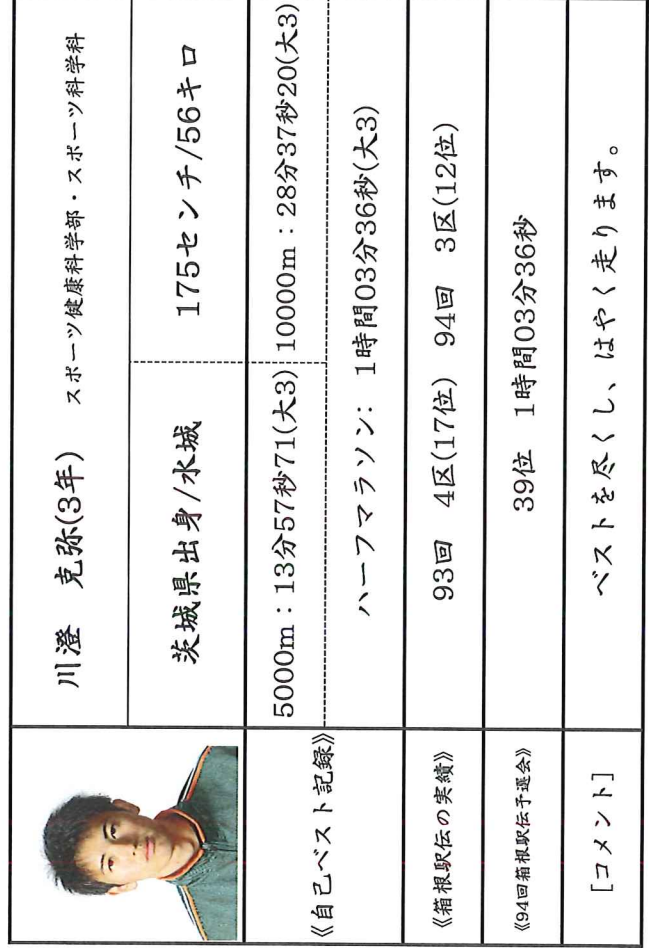 川澄　克弥(3年)　スポーツ健康科学部・スポーツ科学科
茨城県出身/水城　175センチ/56キロ
《自己ベスト記録》　5000m：13分57秒71(大3)　10000m：28分37秒20(大3)
ハーフマラソン：　1時間03分36秒(大3)
《箱根駅伝の実績》　93回　4区(17位)　94回　3区(12位)
《94回箱根駅伝予選会》　39位　1時間03分36秒
[コメント]　ベストを尽くし、はやく走ります。